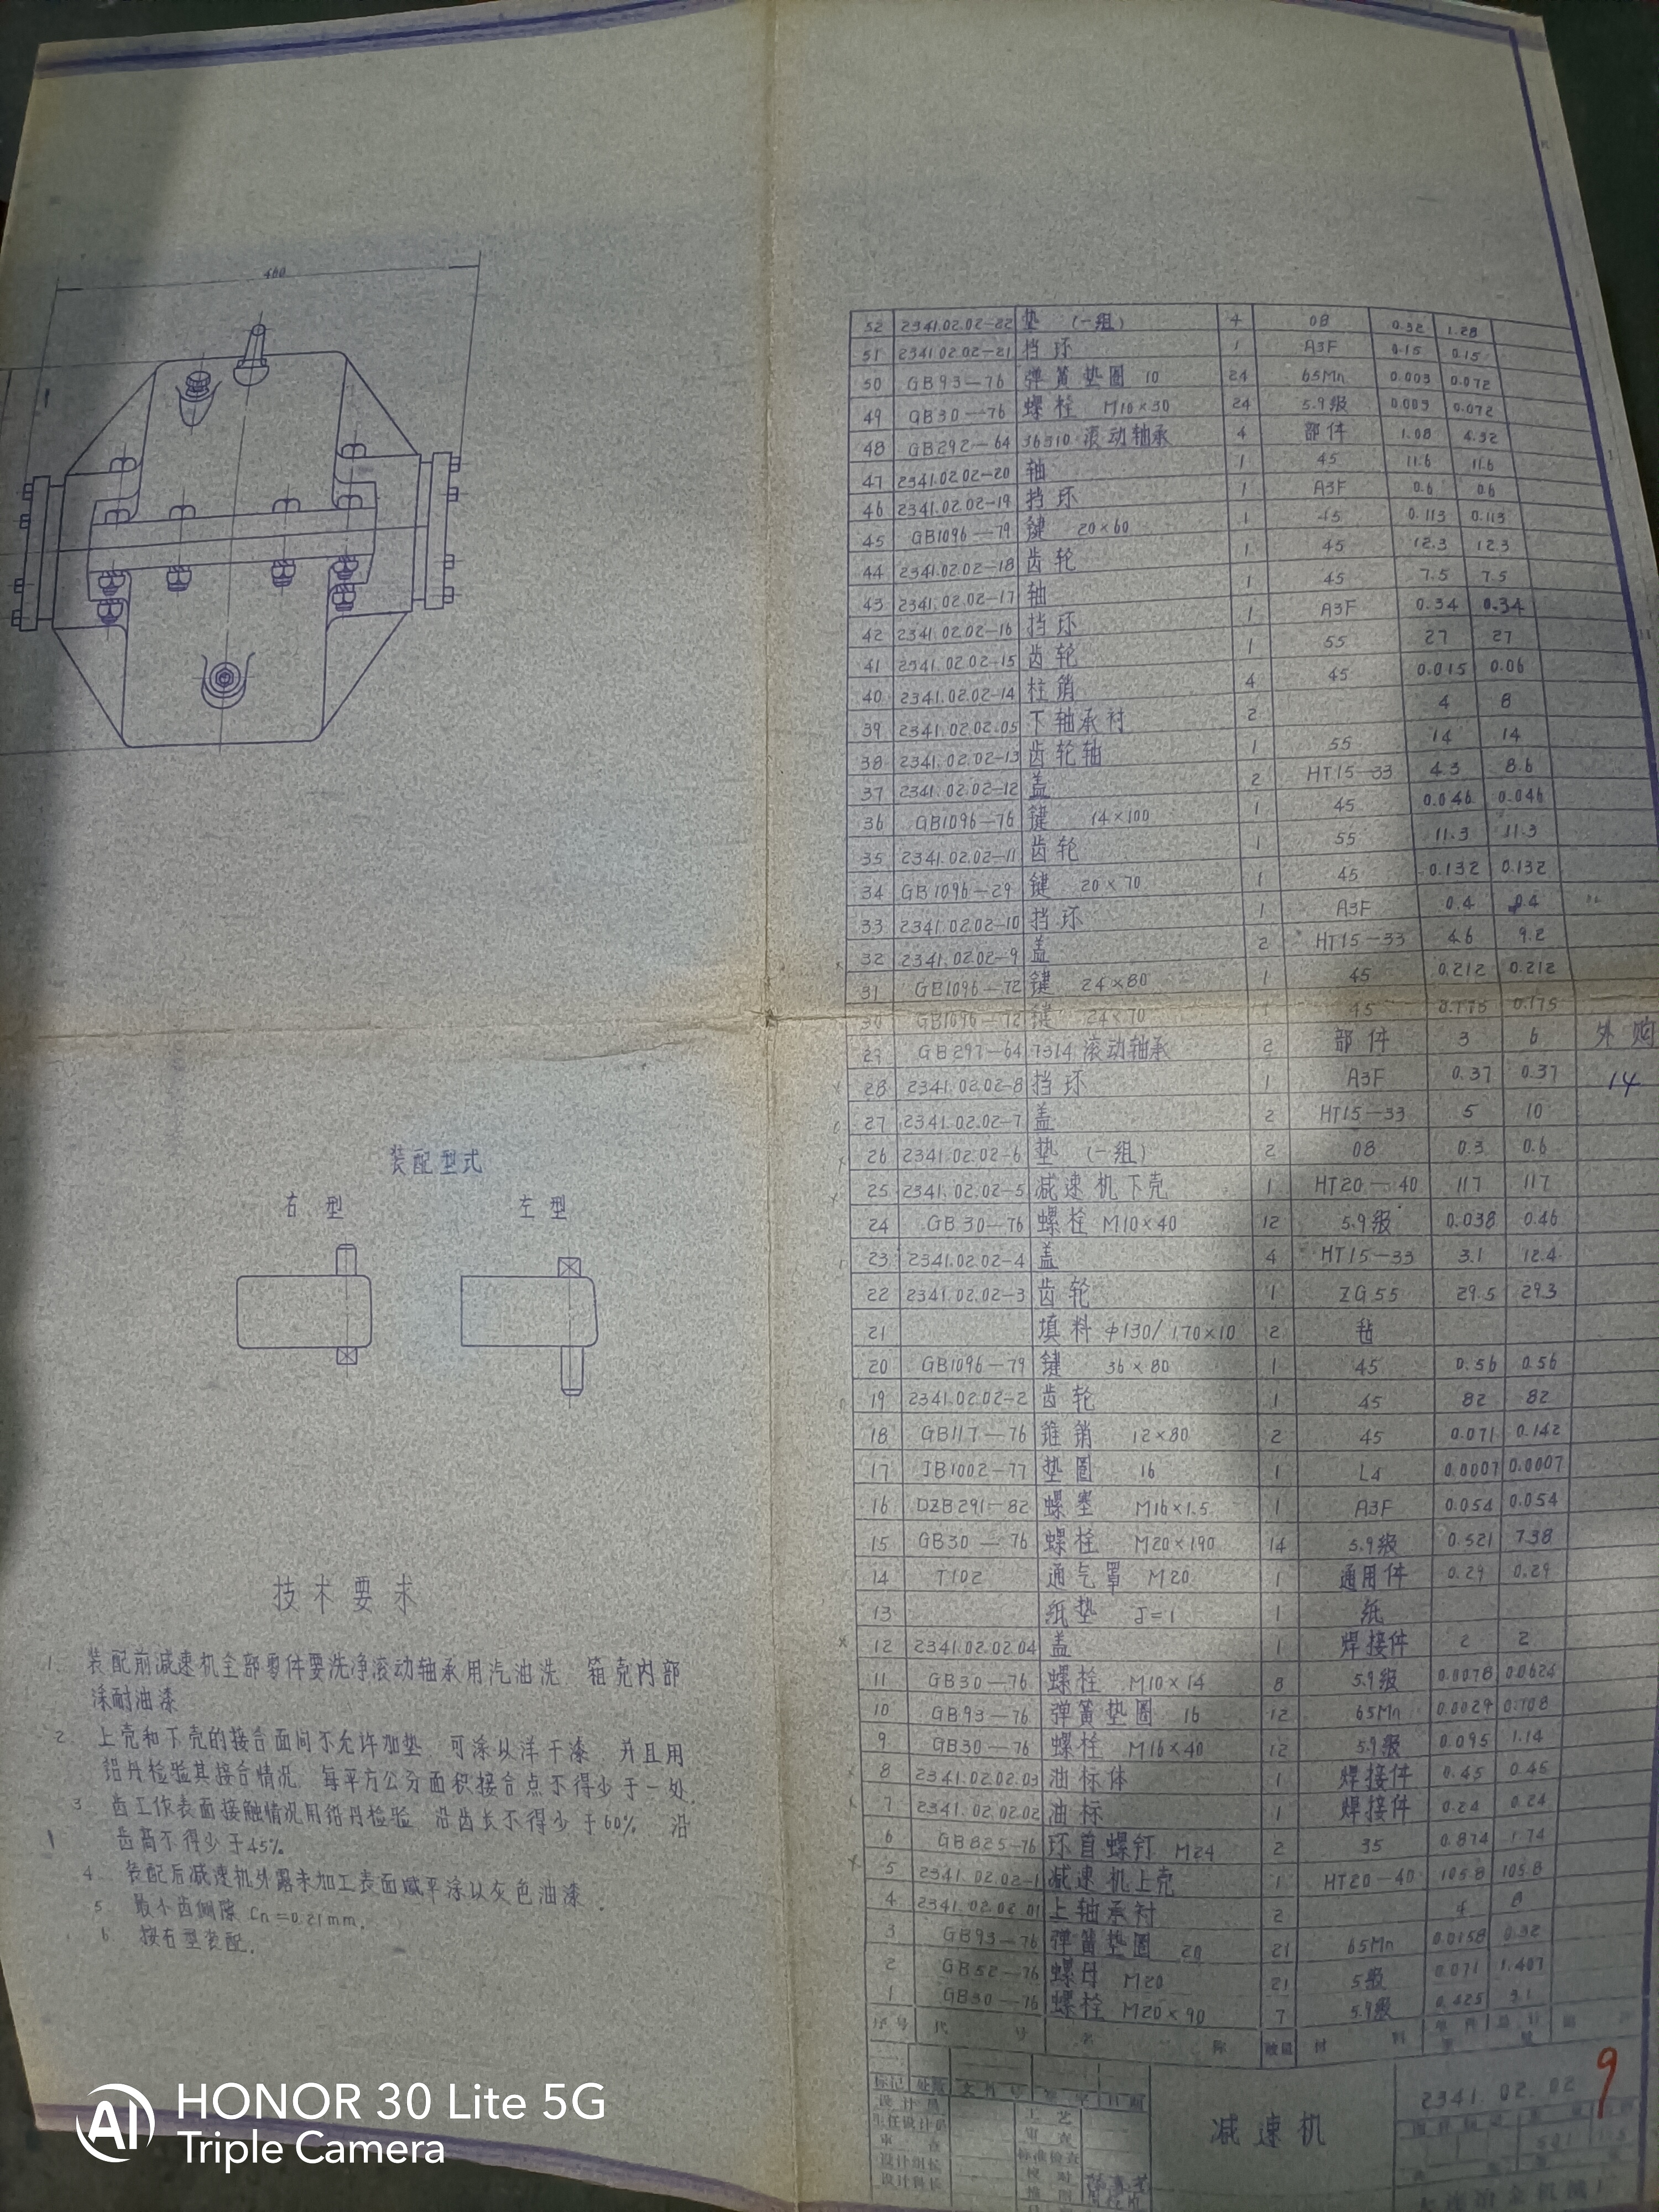 460
52 2341.02.02-22 垫 (一组) 4 08 0.32 1.28
51 2341.02.02-21 挡环 1 A3F 0.15 0.15
50 GB93-76 弹簧垫圈 10 24 65Mn 0.003 0.072
49 GB30-76 螺栓 M10×30 24 5.9级 0.003 0.072
48 GB292-64 36310 滚动轴承 4 部件 1.08 4.32
47 2341.02.02-20 轴 1 45 11.6 11.6
46 2341.02.02-19 挡环 1 A3F 0.6 0.6
45 GB1096-79 键 20×60 1 45 0.113 0.113
44 2341.02.02-18 齿轮 1 45 12.3 12.3
43 2341.02.02-17 轴 1 45 7.5 7.5
42 2341.02.02-16 挡环 1 A3F 0.34 0.34
41 2341.02.02-15 齿轮 1 55 27 27
40 2341.02.02-14 柱销 4 45 0.015 0.06
39 2341.02.02.05 下轴承衬 2 4 8
38 2341.02.02-13 齿轮轴 1 55 14 14
37 2341.02.02-12 盖 2 HT15-33 4.3 8.6
36 GB1096-76 键 14×100 1 45 0.046 0.046
35 2341.02.02-11 齿轮 1 55 11.3 11.3
34 GB1096-29 键 20×70 1 45 0.132 0.132
33 2341.02.02-10 挡环 1 A3F 0.4 0.4
32 2341.02.02-9 盖 2 HT15-33 4.6 9.2
31 GB1096-72 键 24×80 1 45 0.212 0.212
30 GB1096-72 键 24×70 1 45 0.175 0.175
29 GB297-64 7314 滚动轴承 2 部件 3 6 外购
28 2341.02.02-8 挡环 1 A3F 0.37 0.37 14
27 2341.02.02-7 盖 2 HT15-33 5 10
26 2341.02.02-6 垫 (一组) 2 08 0.3 0.6
25 2341.02.02-5 减速机下壳 1 HT20-40 117 117
24 GB30-76 螺栓 M10×40 12 5.9级 0.038 0.46
23 2341.02.02-4 盖 4 HT15-33 3.1 12.4
22 2341.02.02-3 齿轮 1 ZG55 29.5 29.3
21 填料 φ130/170×10 2 毡
20 GB1096-79 键 36×80 1 45 0.56 0.56
19 2341.02.02-2 齿轮 1 45 82 82
18 GB117-76 锥销 12×80 2 45 0.071 0.142
17 JB1002-77 垫圈 16 1 L4 0.0007 0.0007
16 DZB291-82 螺塞 M16×1.5 1 A3F 0.054 0.054
15 GB30-76 螺栓 M20×190 14 5.9级 0.521 7.38
14 T102 通气罩 M20 1 通用件 0.29 0.29
13 纸垫 J=1 1 纸
12 2341.02.02.04 盖 1 焊接件 2 2
11 GB30-76 螺栓 M10×14 8 5.9级 0.0078 0.0624
10 GB93-76 弹簧垫圈 16 12 65Mn 0.0029 0.108
9 GB30-76 螺栓 M16×40 12 5.9级 0.095 1.14
8 2341.02.02.03 油标体 1 焊接件 0.45 0.45
7 2341.02.02.02 油标 1 焊接件 0.24 0.24
6 GB825-76 环首螺钉 M24 2 35 0.874 1.74
5 2341.02.02-1 减速机上壳 1 HT20-40 105.8 105.8
4 2341.02.02.01 上轴承衬 2 4 8
3 GB93-76 弹簧垫圈 20 21 65Mn 0.0158 0.32
2 GB52-76 螺母 M20 21 5级 0.071 1.407
1 GB30-76 螺栓 M20×90 7 5.9级 3.1
序号 代号 名称 数量 材料 单件 总计
标记 处数 文件号 签字 日期
设计员 工艺
主任设计员 审查
审查 标准检查
设计组长 校对
设计科长 描图
减速机
2341.02.02
9
装配型式
右型 左型
技术要求
1 装配前减速机全部零件要洗净滚动轴承用汽油洗 箱壳内部
涂耐油漆
2 上壳和下壳的接合面间不允许加垫 可涂以洋干漆 并且用
铅丹检验其接合情况 每平方公分面积接合点不得少于一处.
3 齿工作表面接触情况用铅丹检验 沿齿长不得少于60% 沿
齿高不得少于45%
4 装配后减速机外露未加工表面碱平涂以灰色油漆.
5 最小齿侧隙 Cn=0.21mm.
6 按右型装配.
HONOR 30 Lite 5G
Triple Camera
AI